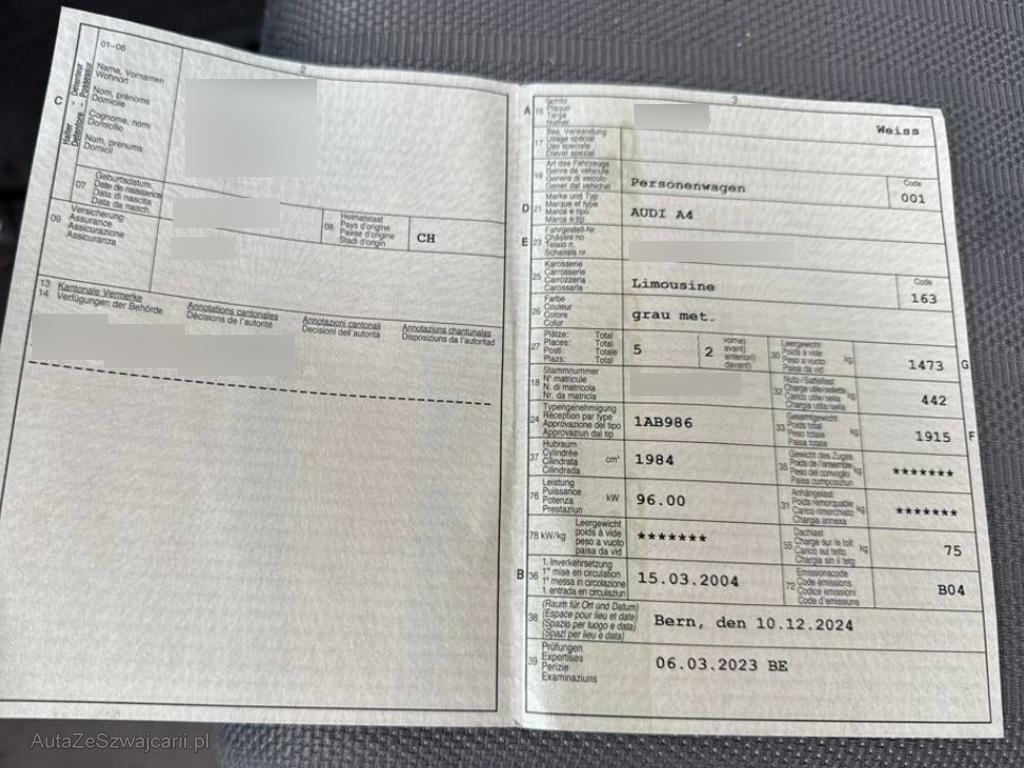 2
01–06
Name, Vornamen
Wohnort
Nom, prénoms
Domicile
Cognome, nomi
Domicilio
Num, prenums
Domicil
C
Halter - Détenteur
Detentore - Possessur
07
Geburtsdatum
Date de naissance
Data di nascita
Data da nasch.
09
Versicherung
Assurance
Assicurazione
Assicuranza
08
Heimatstaat
Pays d'origine
Paese d'origine
Stadi d'origin
CH
13
14
Kantonale Vermerke
Verfügungen der Behörde
Annotations cantonales
Décisions de l'autorité
Annotazioni cantonali
Decisioni dell'autorità
Annotaziuns chantunalas
Disposiziuns da l'autoritad
3
A 15
Schild
Plaque
Targa
Numer
Weiss
17
Bes. Verwendung
Usage spécial
Uso speciale
Diever spezial
19
Art des Fahrzeugs
Genre de véhicule
Genere di veicolo
Gener dal vehichel
Personenwagen
Code
001
D 21
Marke und Typ
Marque et type
Marca e tipo
Marca e tip
AUDI A4
E 23
Fahrgestell-Nr.
Châssis no
Telaio n.
Schassis nr.
25
Karosserie
Carrosserie
Carrozzeria
Carossaria
Limousine
Code
163
26
Farbe
Couleur
Colore
Colur
grau met.
27
Plätze: Total
Places: Total
Posti: Totale
Plazs: Total
5
2
vorne)
avant)
anteriori)
davant)
30
Leergewicht
Poids à vide
Peso a vuoto
Paisa da vid
kg
1473
G
18
Stammnummer
N° matricule
N. di matricola
Nr. da matricla
32
Nutz-/Sattellast
Charge utile/sellette
Carico utile/sella
Chargia utila/sella
kg
442
24
Typengenehmigung
Réception par type
Approvazione del tipo
Approvaziun dal tip
1AB986
33
Gesamtgewicht
Poids total
Peso totale
Paisa totala
kg
1915
F
37
Hubraum
Cylindrée
Cilindrata
Cilindrada
cm³
1984
35
Gewicht des Zuges
Poids de l'ensemble
Peso del convoglio
Paisa cumposiziun
kg
*******
76
Leistung
Puissance
Potenza
Prestaziun
kW
96.00
31
Anhängelast
Poids remorquable
Carico rimorchiato
Chargia annexa
kg
*******
78 kW/kg
Leergewicht
poids à vide
peso a vuoto
paisa da vid
*******
55
Dachlast
Charge sur le toit
Carico sul tetto
Chargia sin il tetg
kg
75
B 36
1. Inverkehrsetzung
1re mise en circulation
1a messa in circolazione
1. entrada en circulaziun
15.03.2004
72
Emissionscode
Code émissions
Codice emissioni
Code d'emissiuns
B04
38
(Raum für Ort und Datum)
(Espace pour lieu et date)
(Spazio per luogo e data)
(Spazi per lieu e data)
Bern, den 10.12.2024
39
Prüfungen
Expertises
Perizie
Examinaziuns
06.03.2023 BE
AutaZeSzwajcarii.pl